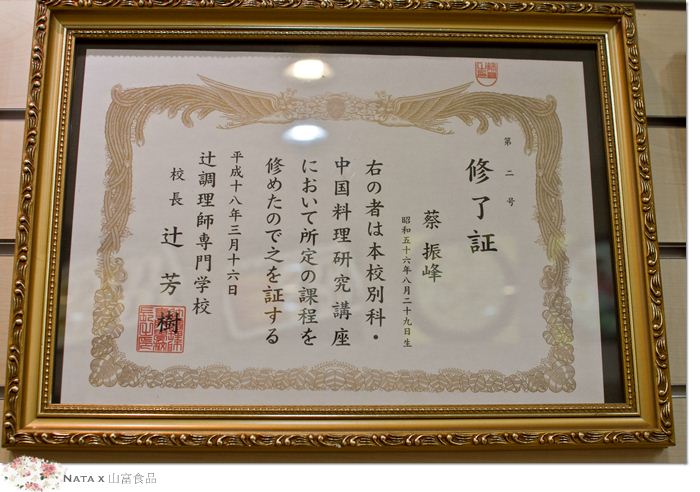 第二号
修了証
蔡振峰
昭和五十六年八月二十九日生
右の者は本校別科・
中国料理研究講座
において所定の課程を
修めたので之を証する
平成十八年三月十六日
辻調理師専門学校
校長 辻芳樹
NATA X 山富食品